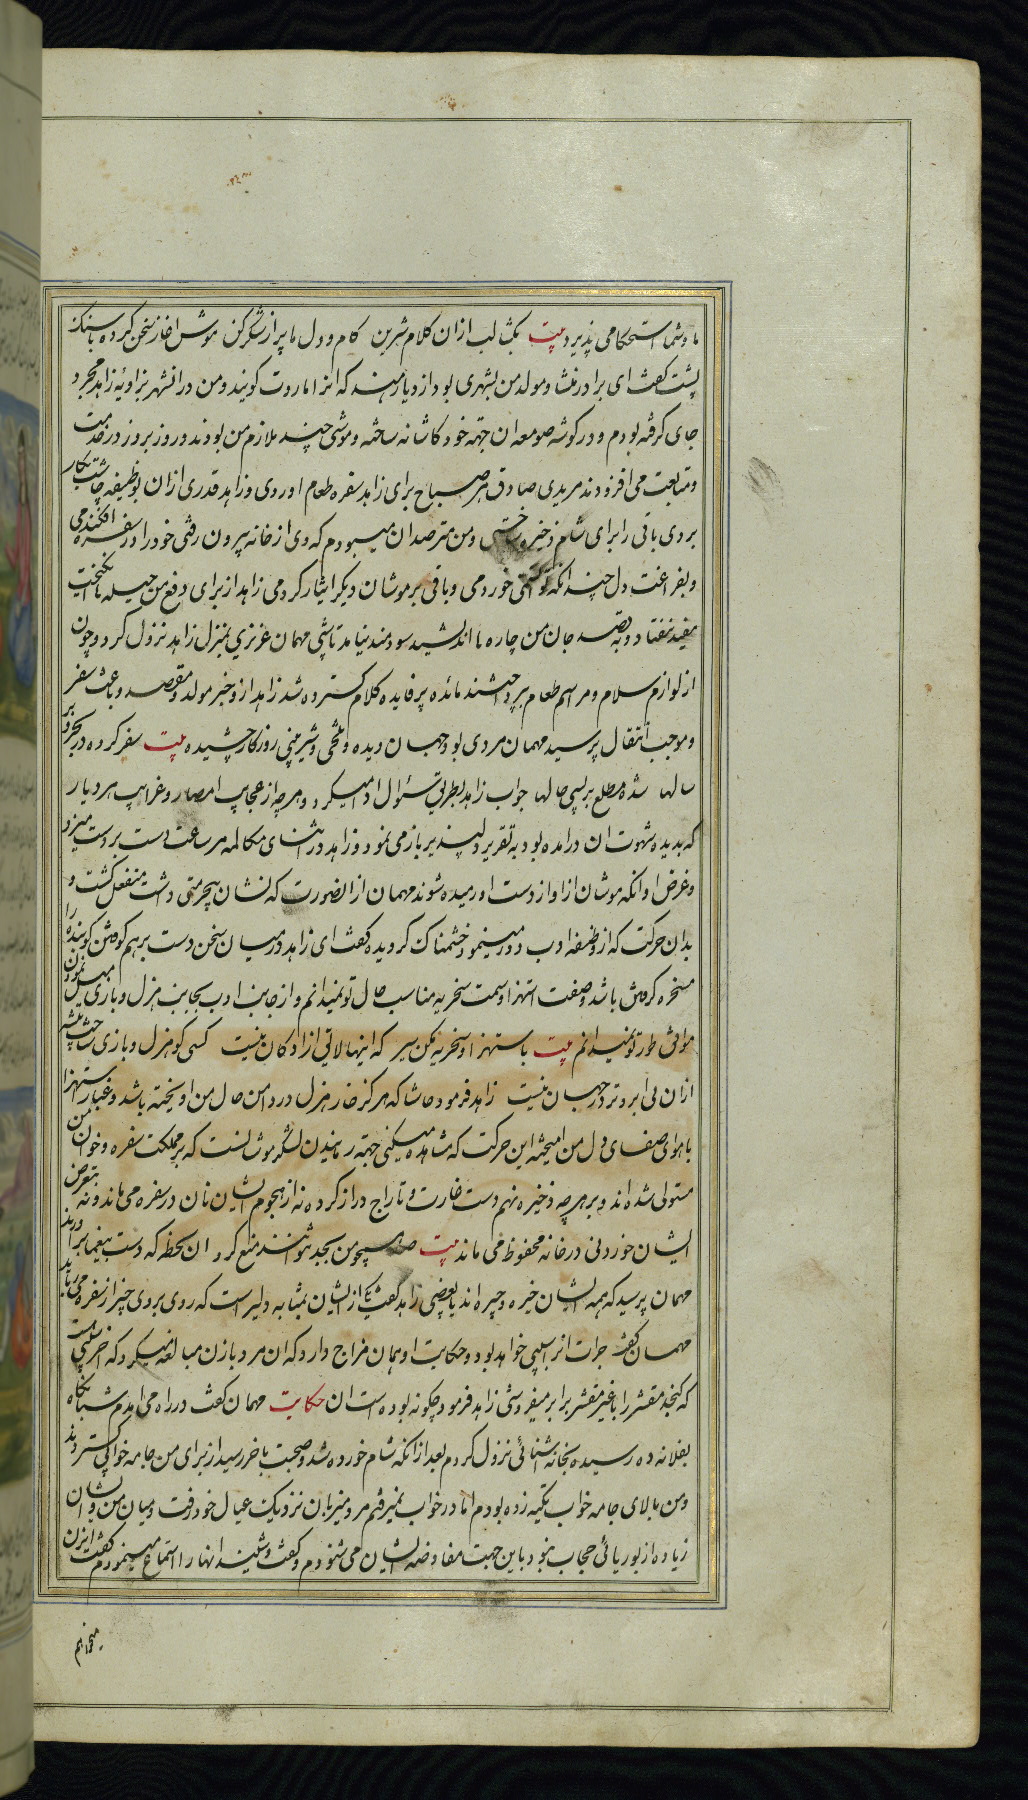 ما و شما استحکامی پذیرد بیت بکشا لب ازان کلام شیرین کام و دل ما پر از شکر کن موش اغاز سخن کرده با سنک
پشت کفت ای برادر منشا و مولد من بشهری بود از دیار هند که انرا ماروت کویند و من در انشهر بزاویه زاهد مجرد
جای کرفته بودم و در کوشه صومعه ان جهة خود کاشانه ساخته و موشی چند ملازم من بودند و روز بروز در خدمت
و متابعت می افزودند مریدی صادق هر صباح برای زاهد سفره طعام اوردی و زاهد قدری ازان بوظیفه چاشت بکار
بردی باقی را برای شام ذخیره ساختی و من مترصد ان میبودم که وی از خانه بیرون رفتی خود را در سفره افکندمی
و بفراغت دل چندانکه توانستمی خوردمی و باقی بر موشان دیکر ایثار کردمی زاهد از برای دفع من حیله ها انکیخت
مفید نیفتاد و بقصد جان من چاره ها اندیشید سودمند نیامد تا شبی مهمان عزیزی بمنزل زاهد نزول کرد و چون
از لوازم سلام و مراسم طعام بپرداختند مائده پر فایده کلام کسترده شد زاهد ازو خبر مولد و مقصد و باعث سفر
و موجب انتقال پرسید مهمان مردی بود جهان دیده و تلخی و شیرینی روزکار چشیده بیت سفر کرده در بحر و بر
سالها شده مطلع بر بسی حالها جواب زاهد بطریق سئوال ادا میکرد و هرچه از عجایب امصار و غرایب هر دیار
که بدیده شهوت ان درامده بود به تقریر دلپذیر باز می نمود و زاهد در اثنای مکالمه هر ساعت دست بر دست میزد
و غرض او انکه موشان از اواز دست او رمیده شوند مهمان ازا نصورت که نشان بیحرمتی داشت منفعل کشت و
بدان حرکت که از وظیفه ادب دور مینمود خشمناک کردیده کفت ای زاهد در میان سخن دست بر هم کوفتن کوینده را
مسخره کرفتن باشد و صفت استهزا و سمت سخریه مناسب حال تو نمیدانم و از جانب ادب بجانب هزل و بازی میل نمودن
موافق طور تو نمیدانم بیت با ستهزا و سخریه مکن سیر که اینها لایق ازادکان نیست کسی کو هزل و بازی پیشه
ازان بی ابروتر در جهان نیست زاهد فرمود حاشا که هرکز خار هزل در دامن حال من اویخته باشد و غبار استهزا
با هوای صفای دل من امیخته این حرکت که مشاهده میکنی جهة رمانیدن لشکر موشانست که بر مملکت سفره و خوان من
مستولی شده اند و بر هرچه ذخیره نهم دست غارت و تاراج دراز کرده نه از هجوم ایشان نان در سفره می ماند و نه بتعرض
ایشان خوردنی در خانه محفوظ می ماند بیت صد همچو من بجد نتوانند منع کرد ان لحظه که دست بیغما برآورند
مهمان پرسید که همه ایشان خیره و چیره اند یا بعضی زاهد کفت یکی از ایشان بمثابه دلیر است که روی بروی چیز از سفره می رباید
مهمان کفت جرات انرا سببی خواهد بود و حکایت او همان مزاج دارد که ان مرد با زن مبالغه میکرد که اخر سببی است
که کنجد مقشر را با غیر مقشر برابر میفروشی زاهد فرمود چکونه بوده است ان حکایت مهمان کفت در راه می امدم شبانکاه
بفلان ده رسیده بخانه اشنائی نزول کردم بعد از انکه شام خورده شد و صحبت باخر رسید از برای من جامه خوابی کستردند
و من بالای جامه خواب تکیه زده بودم اما در خواب نمیرفتم مرد میزبان نزدیک عیال خود رفت و میان من و ایشان
زیاده از بوریائی حجاب نبود باین جهت مفاوضه ایشان می شنودم و کفت و شنید انها را استماع مینمودم کفت ای زن
میخواهم